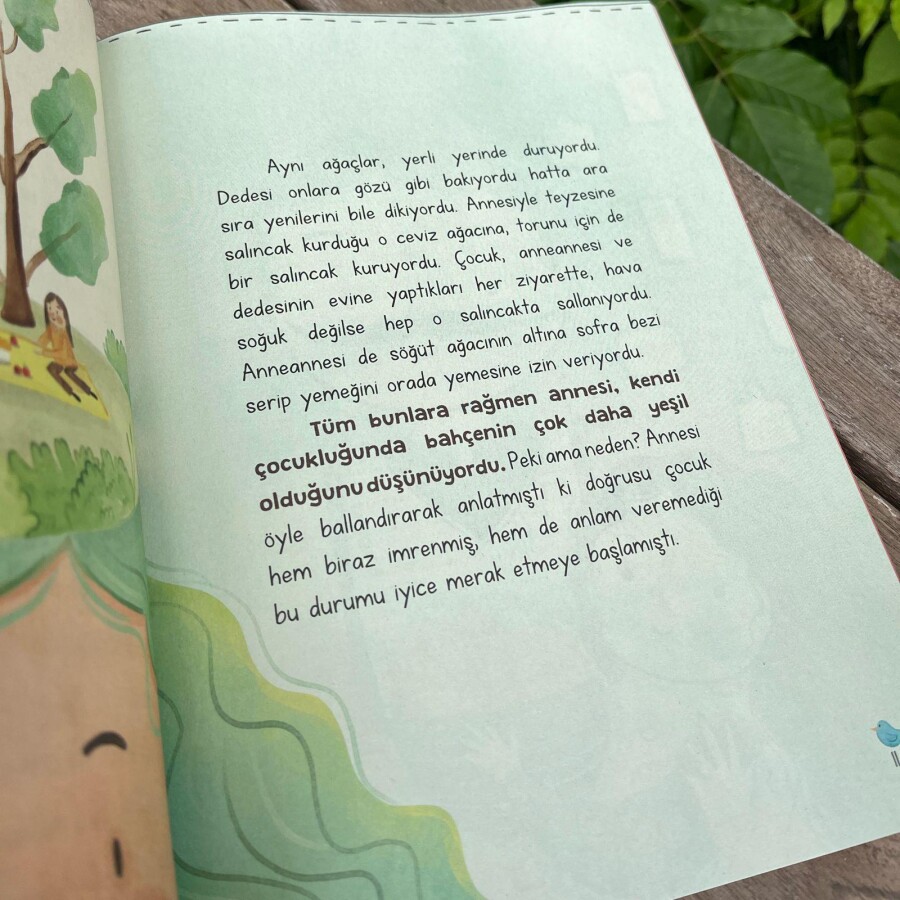 Aynı ağaçlar, yerli yerinde duruyordu.
Dedesi onlara gözü gibi bakıyordu hatta ara
sıra yenilerini bile dikiyordu. Annesiyle teyzesine
salıncak kurduğu o ceviz ağacına, torunu için de
bir salıncak kuruyordu. Çocuk, anneannesi ve
dedesinin evine yaptıkları her ziyarette, hava
soğuk değilse hep o salıncakta sallanıyordu.
Anneannesi de söğüt ağacının altına sofra bezi
serip yemeğini orada yemesine izin veriyordu.
Tüm bunlara rağmen annesi, kendi
çocukluğunda bahçenin çok daha yeşil
olduğunu düşünüyordu. Peki ama neden? Annesi
öyle ballandırarak anlatmıştı ki doğrusu çocuk
hem biraz imrenmiş, hem de anlam veremediği
bu durumu iyice merak etmeye başlamıştı.